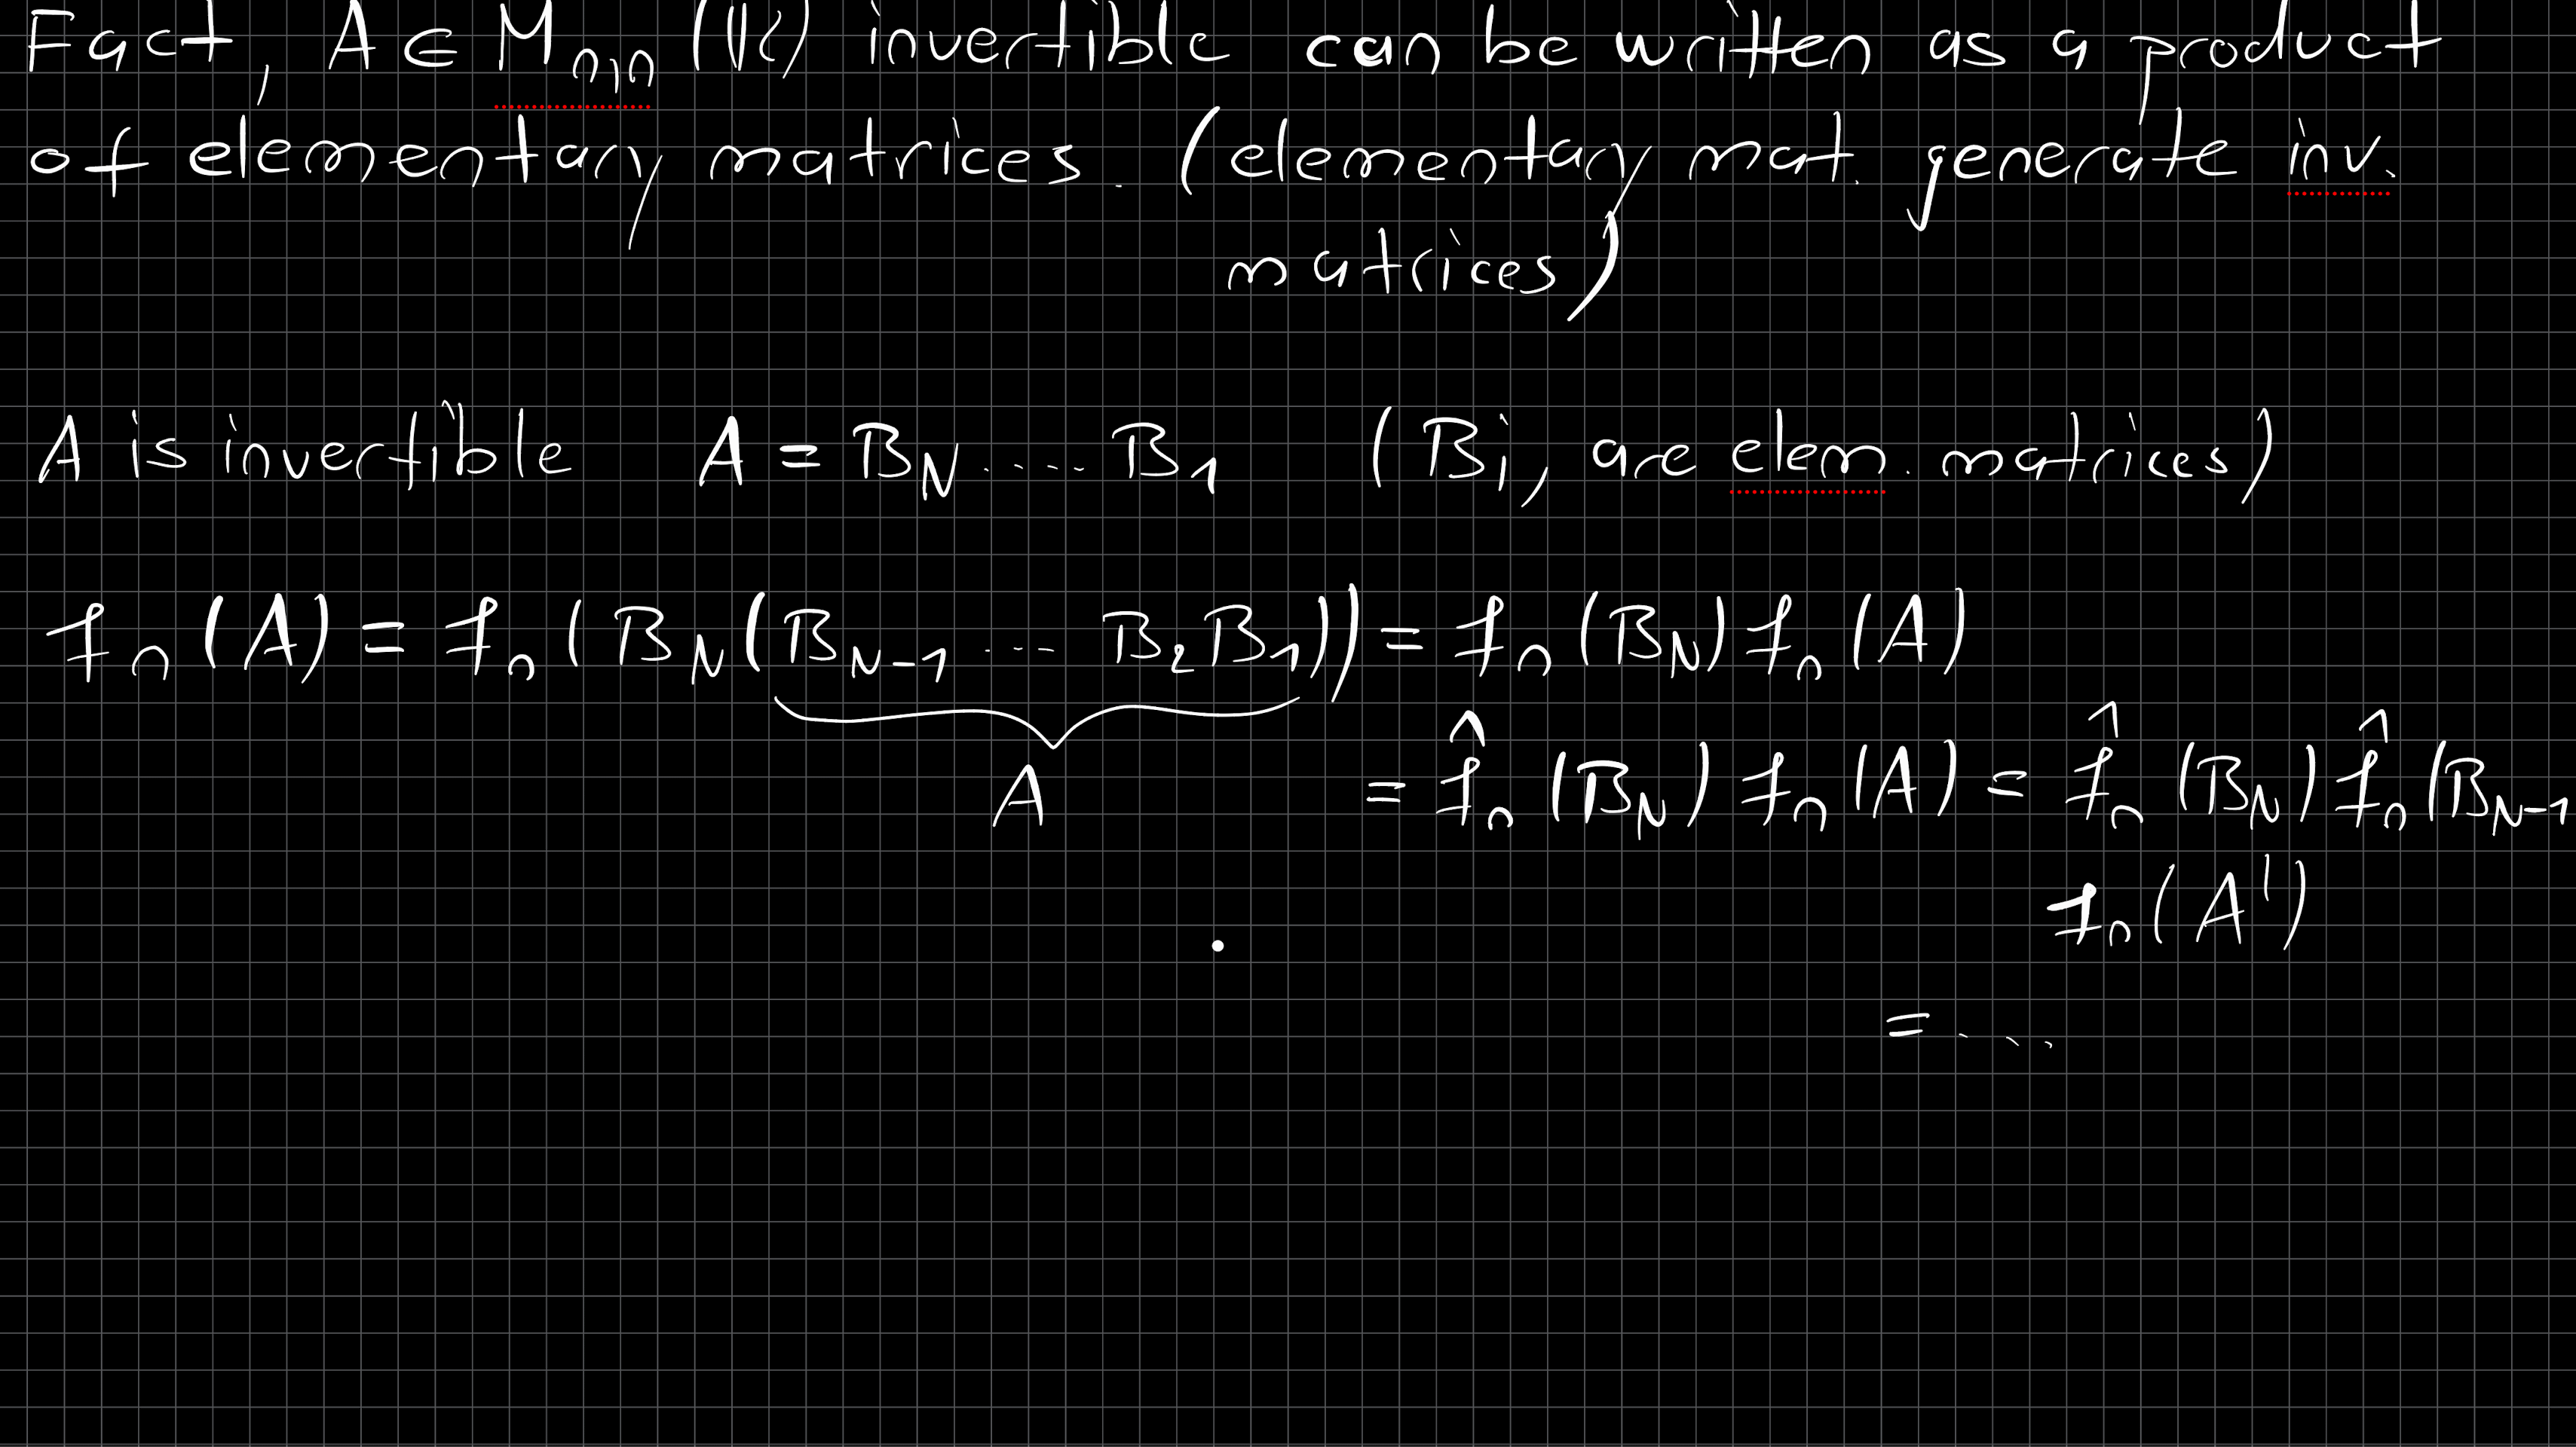 Fact, A ∈ M_{n,n} (𝕂) invertible can be written as a product
of elementary matrices. (elementary mat. generate inv.
matrices)
A is invertible A = B_N ..... B_1 (B_i, are elem. matrices)
f_n (A) = f_n (B_N (B_{N-1} ... B_2 B_1)) = f_n (B_N) f_n (A)
A = f̂_n (B_N) f_n (A) = f̂_n (B_N) f̂_n (B_{N-1}
f_n (A')
= ....